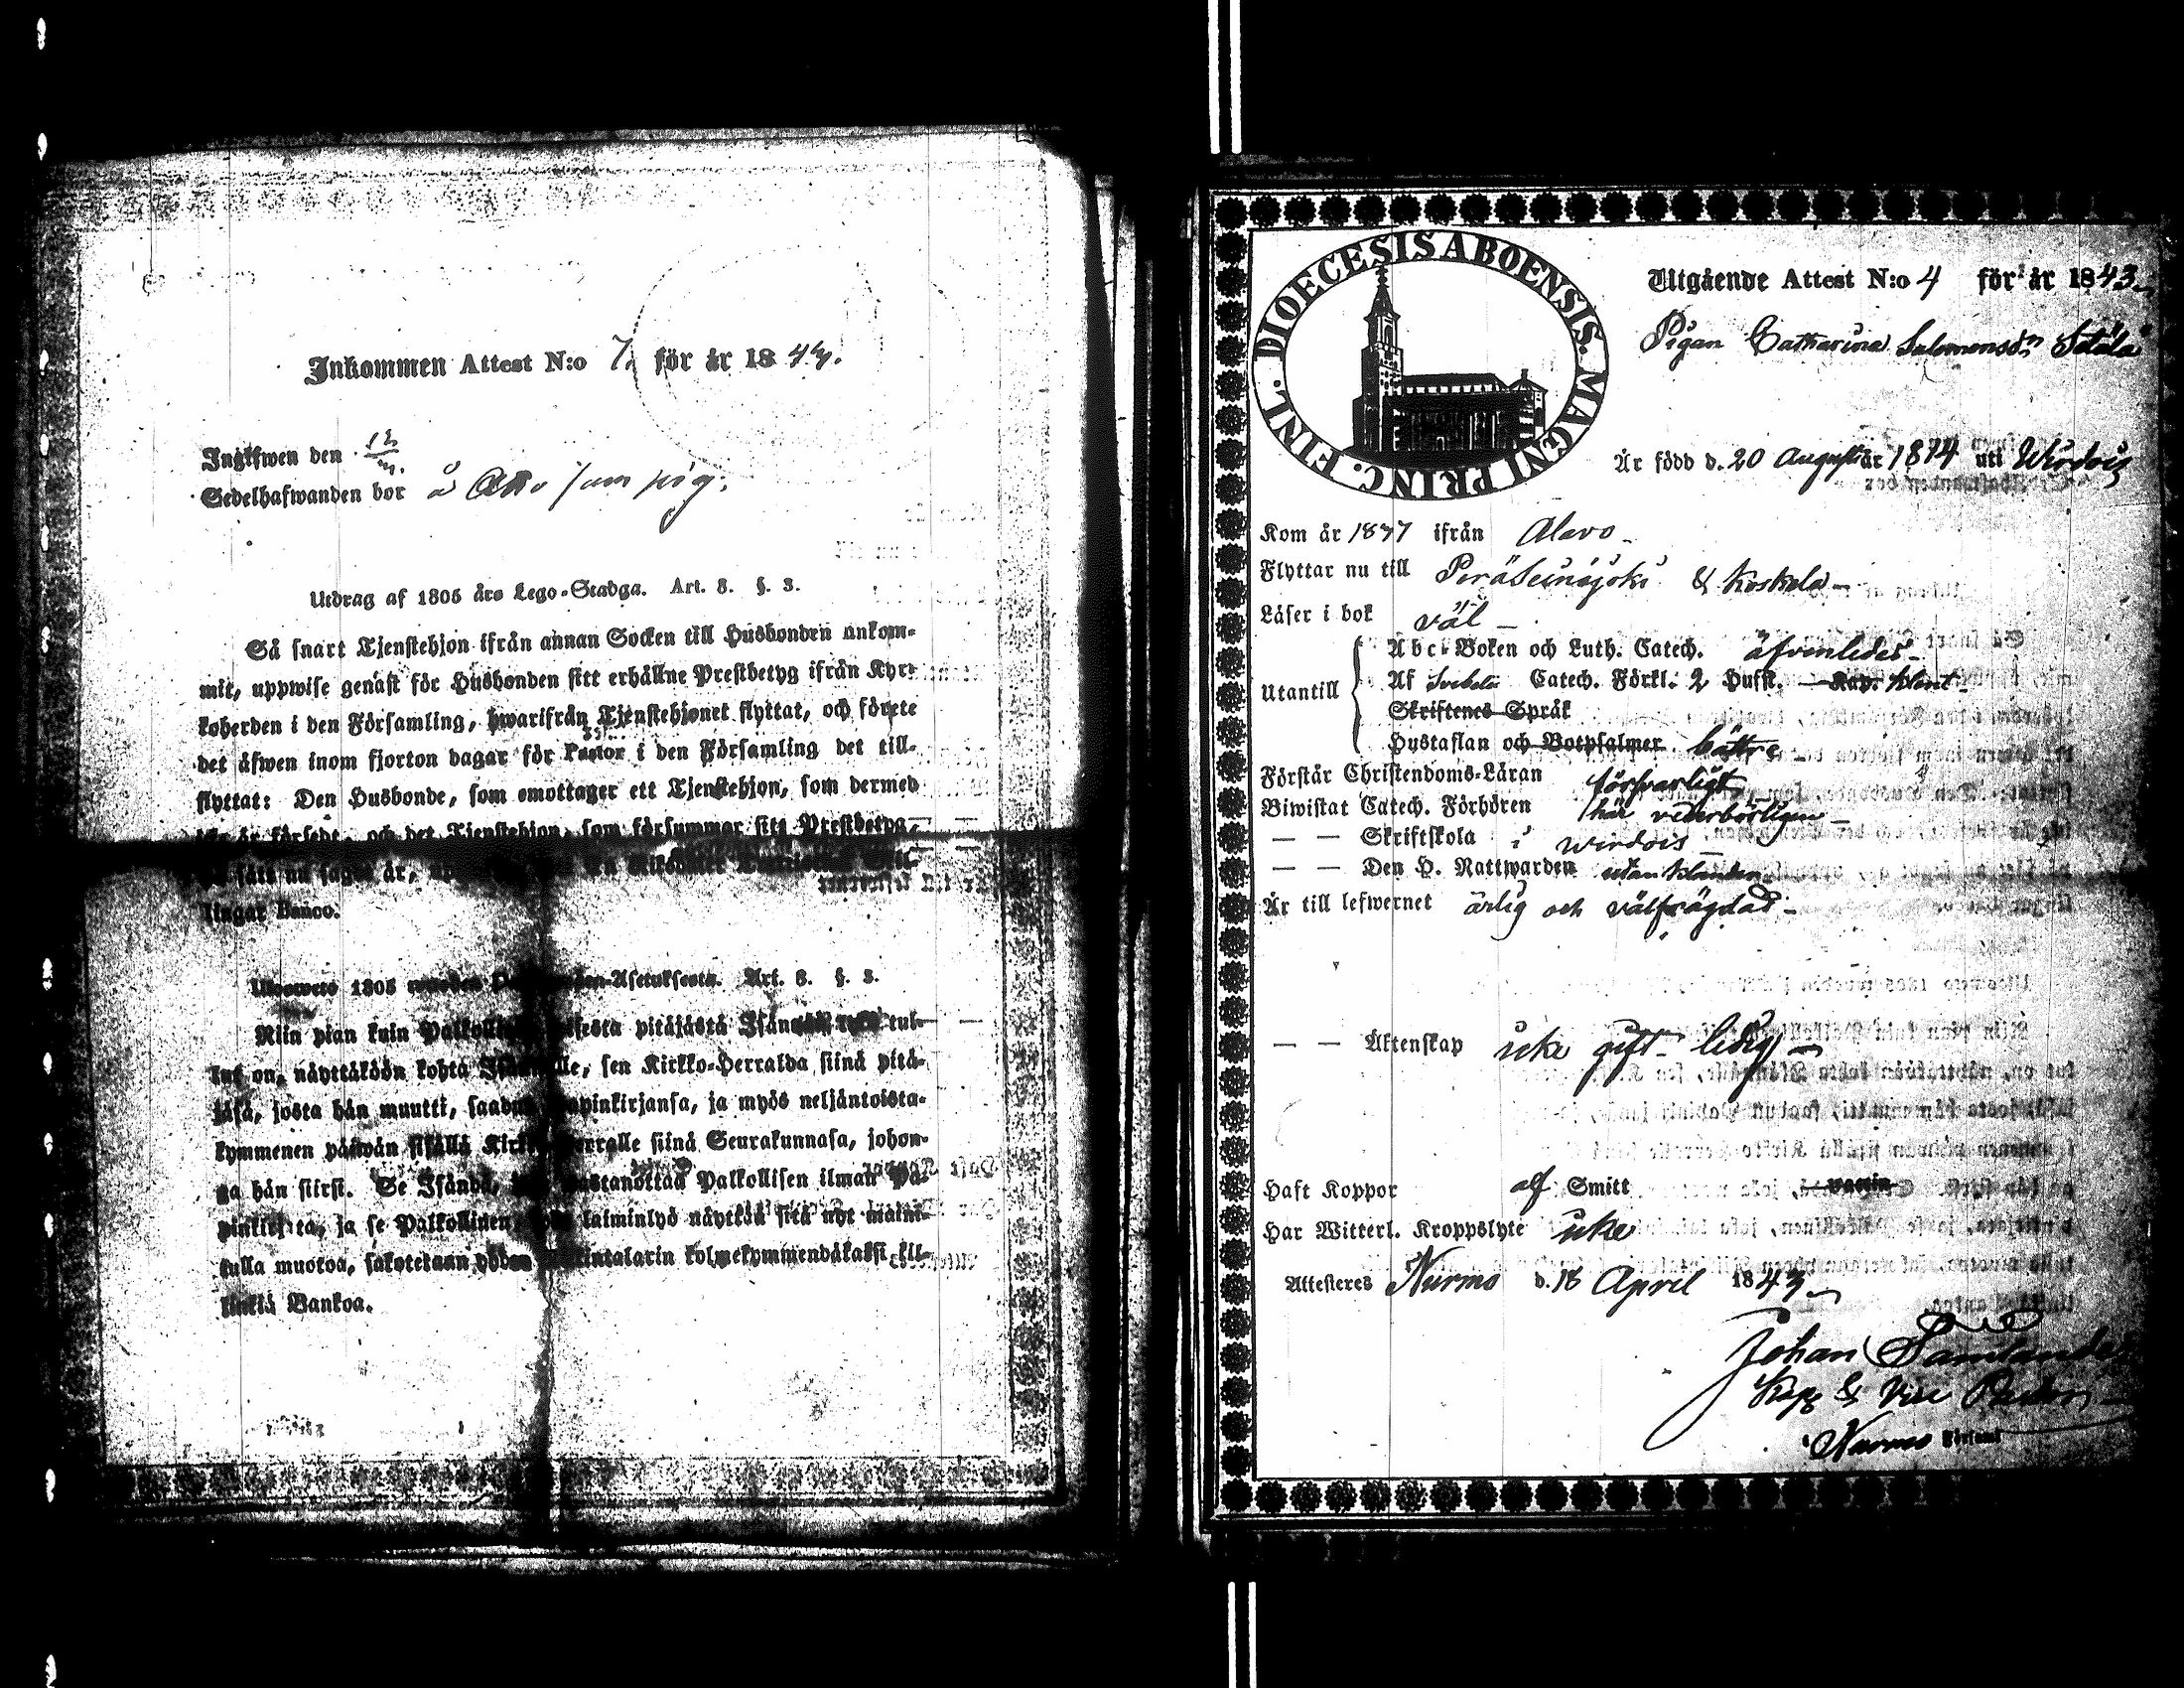 Inkommen Attest N:o 7. för år 1843.
Ingifwen den
Sedelhafwanden bor å
Utdrag af 1805 års Lego-Stadga. Art. 8. §. 3.
Så snart Tjenstehjon ifrån annan Socken till Husbonden ankom-
mit, uppwise genast för Husbonden sitt erhållne Prestbetyg ifrån Kyr-
koherden i den Församling, hwarifrån Tjenstehjonet flyttat, och förete
det äfwen inom fjorton dagar för Pastor i den Församling det till-
flyttat: Den Husbonde, som emottager ett Tjenstehjon, som dermed
är försedt, och det Tjenstehjon, som försummar sitt Prestbetyg
sätt nu sagdt är,
lingar Banco.
1805 Asetuksesta. Art. 8. §. 3.
Niin pian kuin pitäjästä tul-
lut on, näyttäköön kohta sen Kirkko-Herralda siinä pitä-
jäsä, josta hän muutti, ja myös neljäntoista-
kymmenen päiwän sisällä siinä Seurakunnasa, johon-
ga hän siirsi. Se Isändä, Palkollisen ilman
ja se Palkollinen, laiminlyö näyttää sitä nyt maini-
tulla muotoa, kolmekymmendäkaksi kil-
linkiä Bankoa.
DIOECESIS ABOENSIS. MAGNI PRINC. FINL.
Utgående Attest N:o 4 för år 1843
Pigan Catharina Salomonsdr
Är född d. 20 Augusti år 1814 uti Wirdois
Kom år 1837 ifrån Alavo
Flyttar nu till Peräseinäjoki & Koskela
Läser i bok väl
Utantill
Abc-Boken och Luth. Catech. äfvenledes
Af Svebeli Catech. Förkl. 2 Hufst. Kap. klent
Skriftenes Språk
Hustaflan och Botpsalmer bättre
Förstår Christendoms-Läran försvarligt
Biwistat Catech. Förhören här vederbörligen
— — Skriftskola i Wirdois
— — Den H. Nattwarden utan klander
Är till lefwernet ärlig och välfrägdad
— — Äktenskap icke gift ledig
Haft Koppor af Smitt vaccin
Har Witterl. Kroppslyte icke
Attesteres Nurmo d. 18 April 1843
Johan
Kapp & Vice Pastor
Nurmo